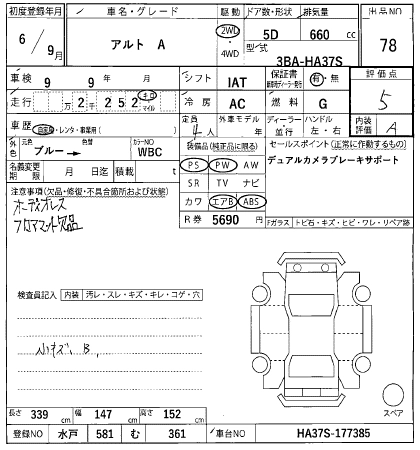 初度登録年月 車名・グレード 駆動 ドア数・形状 排気量 出品NO
6/9月 アルト A 2WD・4WD 5D 660cc 78
型式 3BA-HA37S
車検 9 9年 月 シフト IAT 保証書 有・無 評価点
走行 万2千252 キロ マイル 冷房 AC 燃料 G 5
車歴 自家用・レンタ・事業用( ) 定員 4人 外車モデル 年 ディーラー・並行 ハンドル 左・右 内装評価 A
外色 元色 ブルー→ 色替 カラーNO WBC 装備品(純正品に限る) セールスポイント(正常に作動するもの)
名義変更期限 月 日迄 積載 t PS PW AW デュアルカメラブレーキサポート
注意事項(欠品・修復・不具合箇所および状態) SR TV ナビ
オーディオレス カワ エアB ABS
フロアマット欠品 R券 5690円 Fガラス トビ石・キズ・ヒビ・ワレ・リペア跡
検査員記入 内装 汚レ・スレ・キズ・キレ・コゲ・穴
小キズ、B、
スペア
長さ 339cm 幅 147cm 高さ 152cm
登録NO 水戸 581 む 361 車台NO HA37S-177385